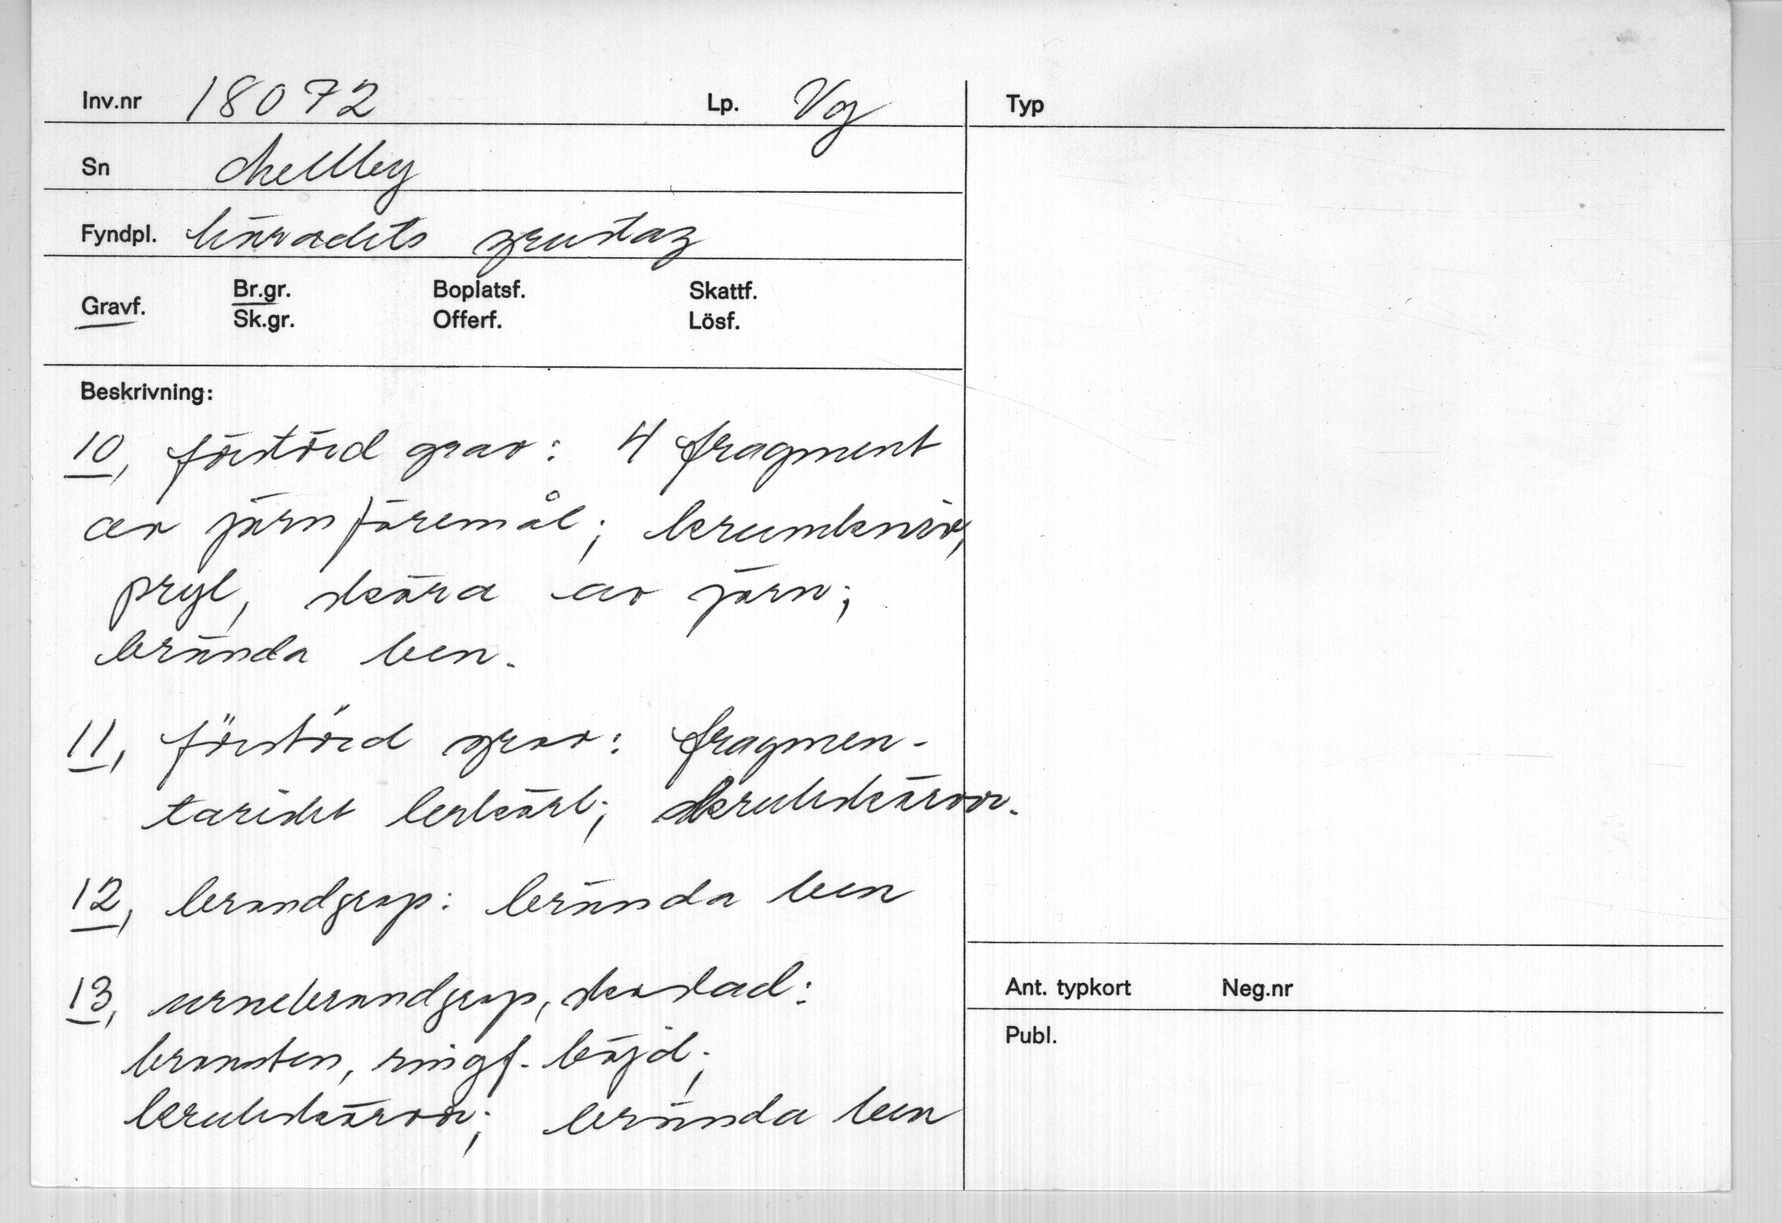 Inv.nr 18072 Lp. Vg Typ
Sn Mellby
Fyndpl. häradets grustag
Gravf. Br.gr. Boplatsf. Skattf.
Sk.gr. Offerf. Lösf.
Beskrivning:
10, förstörd grav: 4 fragment
av järnföremål; krumkniv,
pryl, skära av järn;
brända ben.
11, förstörd grav: fragmen-
tariskt lerkärl; krukskärvor.
12, brandgrop: brända ben
13, urnebrandgrop, skadad:
bronsten, ringf. böjd;
krukskärvor; brända ben
Ant. typkort Neg.nr
Publ.